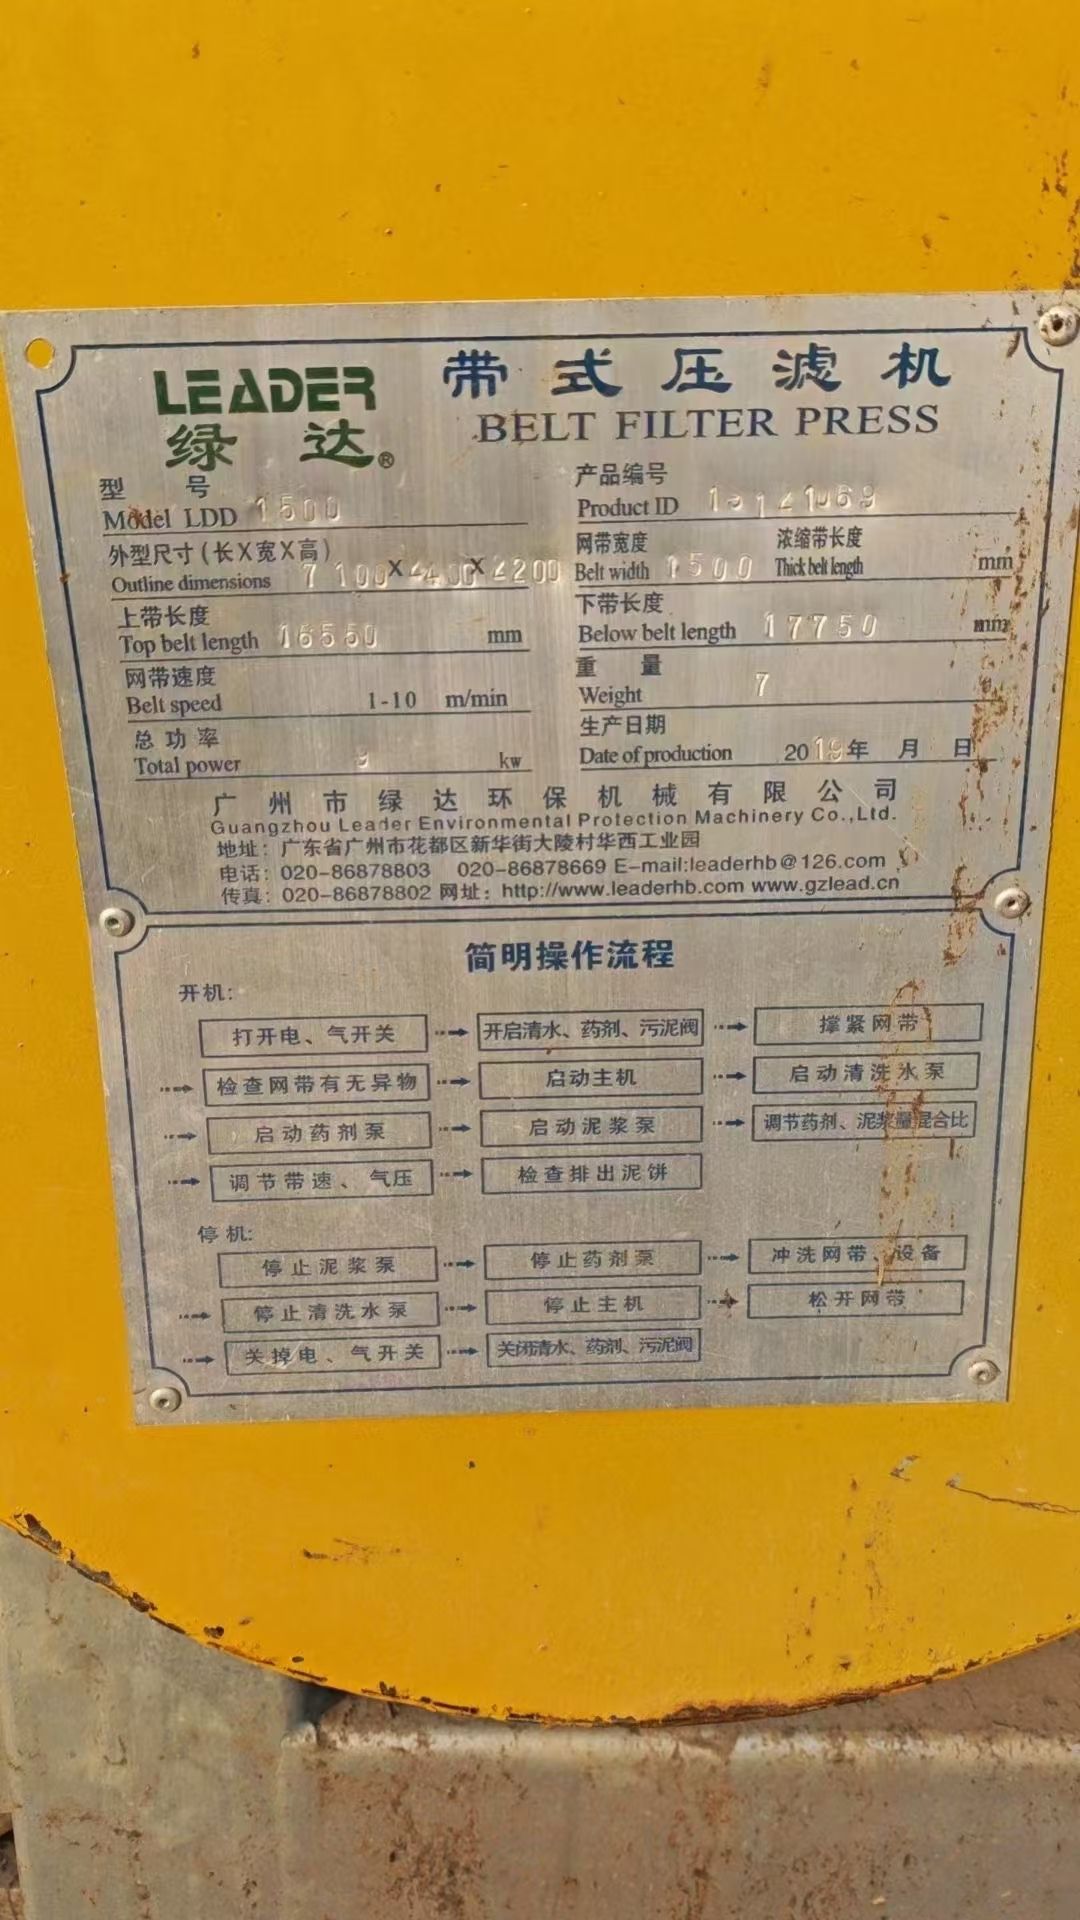 LEADER
绿达®
带式压滤机
BELT FILTER PRESS
型号
Model LDD 1500
产品编号
Product ID
外型尺寸(长X宽X高)
Outline dimensions 7100X2400X2200
网带宽度
Belt width 1500
浓缩带长度
Thick belt length mm
上带长度
Top belt length 16550 mm
下带长度
Below belt length 17750 mm
网带速度
Belt speed 1-10 m/min
重量
Weight 7
总功率
Total power 9 kw
生产日期
Date of production 2019年 月 日
广州市绿达环保机械有限公司
Guangzhou Leader Environmental Protection Machinery Co.,Ltd.
地址：广东省广州市花都区新华街大陵村华西工业园
电话：020-86878803 020-86878669 E-mail:leaderhb@126.com
传真：020-86878802 网址：http://www.leaderhb.com www.gzlead.cn
简明操作流程
开机:
打开电、气开关 → 开启清水、药剂、污泥阀 → 撑紧网带
→ 检查网带有无异物 → 启动主机 → 启动清洗水泵
→ 启动药剂泵 → 启动泥浆泵 → 调节药剂、泥浆量混合比
→ 调节带速、气压 → 检查排出泥饼
停机:
停止泥浆泵 → 停止药剂泵 → 冲洗网带、设备
→ 停止清洗水泵 → 停止主机 → 松开网带
→ 关掉电、气开关 → 关闭清水、药剂、污泥阀